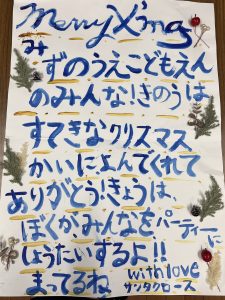 Merry X'mas
みずのうえこどもえん
のみんな!きのうは
すてきなクリスマス
かいによんでくれて
ありがとう!きょうは、
ぼくが、みんなをパーティーに
しょうたいするよ!!
まってるね with love
サンタクロース